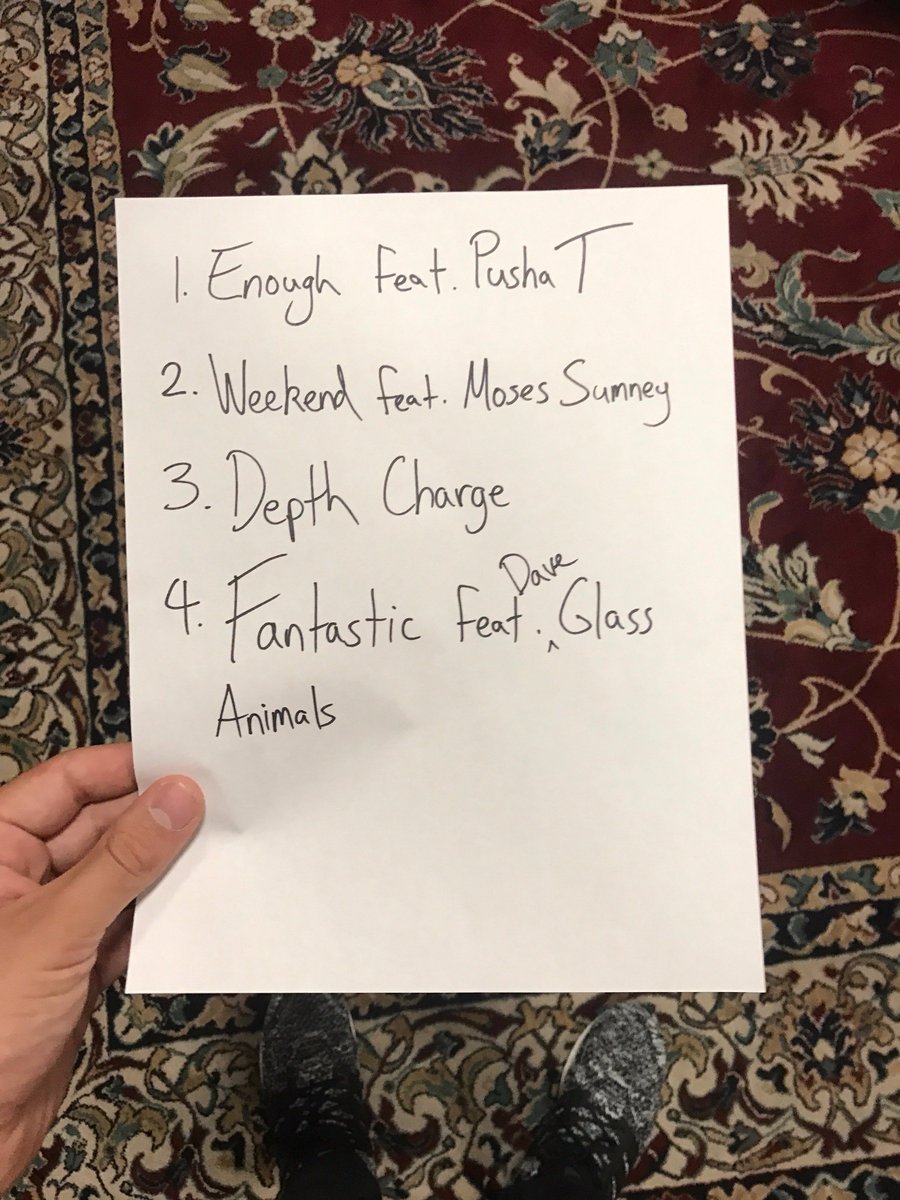 1. Enough feat. Pusha T
2. Weekend feat. Moses Sumney
3. Depth Charge
4. Fantastic feat. Dave Glass
Animals